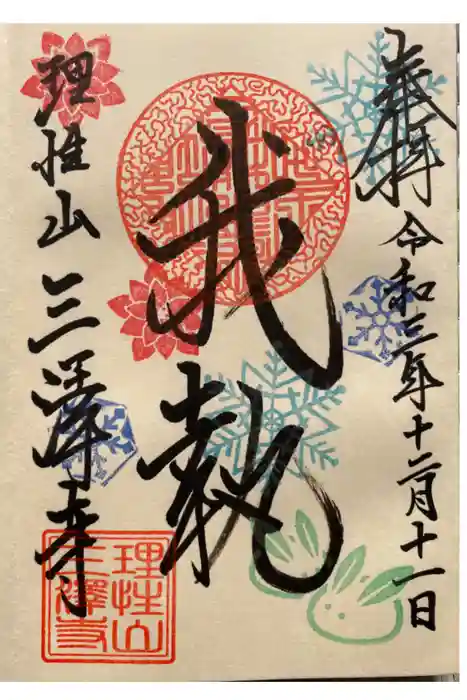 奉拝 令和三年十二月十一日
我執
理性山 三澤寺
理性山
三澤寺